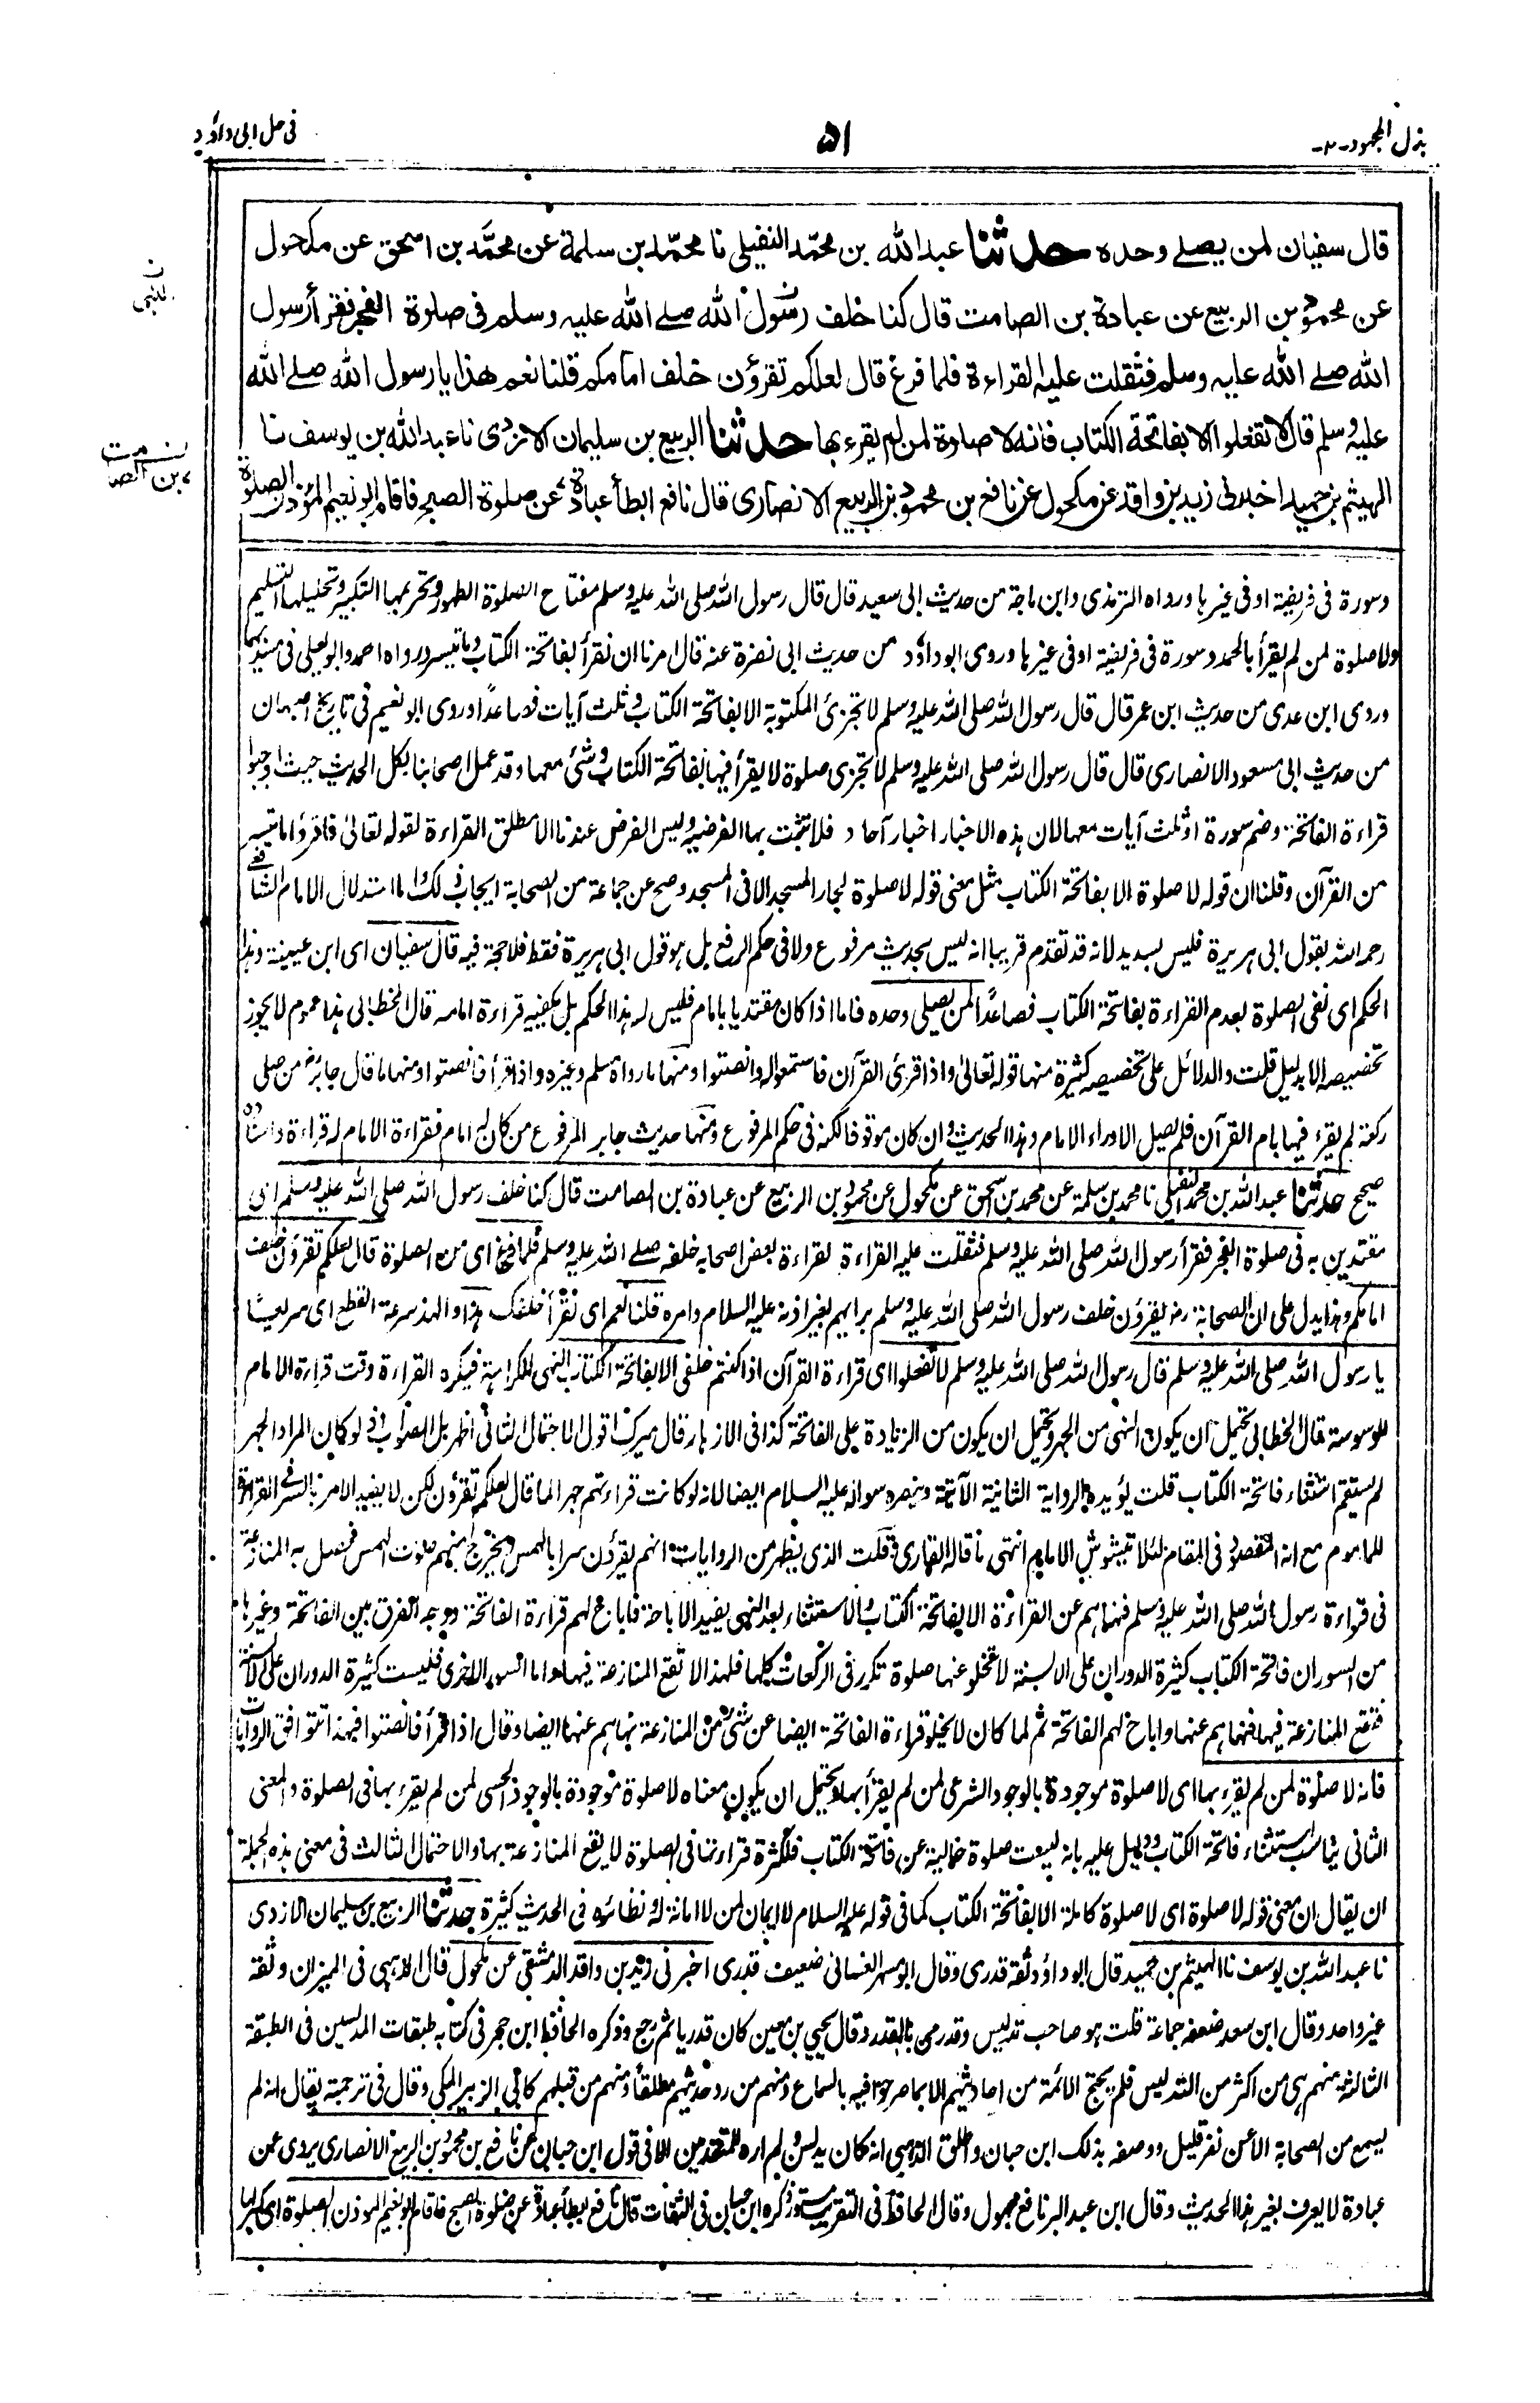 بذل المجهود-٢-
٥١
فى حل ابى داؤد
قال سفيان لمن يصلے وحده حدثنا عبدالله بن محمّد النفيلى نا محمّد بن سلمة عن محمّد بن اسحٰق عن مكحول
عن محمود بن الربيع عن عبادة بن الصامت قال كنا خلف رسول الله صلے الله عليه وسلم فى صلوة الفجر فقرأ رسول
الله صلے الله عليه وسلم فثقلت عليه القراءة فلما فرغ قال لعلكم تقرؤن خلف امامكم قلنا نعم هذا يا رسول الله صلے الله
عليه وسلم قال لا تفعلوا الا بفاتحة الكتاب فانه لا صلوة لمن لم يقرء بها حدثنا الربيع بن سليمان الازدى نا عبدالله بن يوسف نا
الهيثم بن حميد اخبرنى زيد بن واقد عن مكحول عن نافع بن محمود بن الربيع الانصارى قال نافع ابطأ عبادة عن صلوة الصبح فاقام ابو نعيم المؤذن الصلوة
بن الصامت
وسورة فى فريضة او فى غيرها ورواه الترمذى وابن ماجة من حديث ابى سعيد قال قال رسول الله صلى الله عليه وسلم مفتاح الصلوة الطهور وتحريمها التكبير وتحليلها التسليم
ولا صلوة لمن لم يقرأ بالحمد وسورة فى فريضة او فى غيرها وروى ابوداؤد من حديث ابى نضرة عنه قال امرنا ان نقرأ بفاتحة الكتاب وما تيسر ورواه احمد وابو يعلى فى مسنديهما
وروى ابن عدى من حديث ابن عمر قال قال رسول الله صلى الله عليه وسلم لا تجزئ المكتوبة الا بفاتحة الكتاب وثلث آيات فصاعدًا وروى ابو نعيم فى تاريخ اصبهان
من حديث ابى مسعود الانصارى قال قال رسول الله صلى الله عليه وسلم لا تجزى صلوة لا يقرأ فيها بفاتحة الكتاب وشئ معها وقد عمل اصحابنا بكل الحديث حيث اوجبوا
قراءة الفاتحة وضم سورة او ثلث آيات معها لان هذه الاخبار اخبار آحاد فلا تثبت بها الفرضية وليس الفرض عندنا الا مطلق القراءة لقوله تعالىٰ فاقرؤا ما تيسر
من القرآن وقلنا ان قوله لا صلوة الا بفاتحة الكتاب مثل معنى قوله لا صلوة لجار المسجد الا فى المسجد وصح عن جماعة من الصحابة ايجاب ذلك واما استدلال الامام الشافعے
رحمه الله بقول ابى هريرة فليس بسديد لانه قد تقدم قريبا انه ليس بحديث مرفوع ولا فى حكم الرفع بل هو قول ابى هريرة فقط فلا حجة فيه قال سفيان اى ابن عيينة وهذا
الحكم اى نفى الصلوة لعدم القراءة بفاتحة الكتاب فصاعدًا لمن يصلى وحده فاما اذا كان مقتديا بامام فليس له هذا الحكم بل يكفيه قراءة امامه قال الخطابى هذا عموم لا يجوز
تخصيصه الا بدليل قلت والدلائل على تخصيصه كثيرة منها قوله تعالىٰ واذا قرئ القرآن فاستمعوا له وانصتوا ومنها ما رواه مسلم وغيره واذا قرأ فانصتوا ومنها ما قال جابر من صلى
ركعة لم يقرء فيها بام القرآن فلم يصل الا وراء الامام وهذا الحديث وان كان موقوفا لكنه فى حكم المرفوع ومنها حديث جابر المرفوع من كان له امام فقراءة الامام له قراءة
صحيح حدثنا عبدالله بن محمد النفيلى نا محمد بن سلمة عن محمد بن اسحق عن مكحول عن محمود بن الربيع عن عبادة بن الصامت قال كنا خلف رسول الله صلى الله عليه وسلم اى
مقتدين به فى صلوة الفجر فقرأ رسول الله صلى الله عليه وسلم فثقلت عليه القراءة لقراءة بعض اصحابه خلفه صلے الله عليه وسلم فلما فرغ اى من الصلوة قال لعلكم تقرؤن خلف
امامكم وهذا يدل على ان الصحابة يقرؤن خلف رسول الله صلى الله عليه وسلم برايهم بغير اذنه عليه السلام وامره قلنا نعم اى نقرأ خلفك هذا والهذ سرعة القطع اى سريعًا
يا رسول الله صلى الله عليه وسلم قال رسول الله صلى الله عليه وسلم لا تفعلوا اى قراءة القرآن اذا كنتم خلفى الا بفاتحة الكتاب النهى للكراهة فيكره القراءة وقت قراءة الامام
للوسوسة قال الخطابى يحتمل ان يكون النهى من الجهر ويحتمل ان يكون من الزيادة على الفاتحة كذا فى الازهار قال ميرك اقول الاحتمال الثانى اظهر بل الصواب اذ لو كان المراد الجهر
لم يستقم استثناء فاتحة الكتاب قلت يؤيده الرواية الثانية الآتية وينصره سواله عليه السلام ايضا لانه لو كانت قراءتهم جهرا لما قال لعلكم تقرؤن لكن لا يفيد الامر بالسر فى القراءة
للماموم مع انه المقصود فى المقام لئلا يتشوش الامام انتهى ما قاله القارى قلت الذى يظهر من الروايات انهم يقرؤن سرا بالهمس ويخرج منهم صوت الهمس فحصل به المنازعة
فى قراءة رسول الله صلى الله عليه وسلم فنهاهم عن القراءة الا بفاتحة الكتاب والاستثناء بعد النهى يفيد الاباحة فاباح لهم قراءة الفاتحة ووجه الفرق بين الفاتحة وغيرها
من السور ان فاتحة الكتاب كثيرة الدوران على الالسنة لا تخلو عنها صلوة تكرر فى الركعات كلها فلهذا لا تقع المنازعة فيها واما السور الاخرى فليست كثيرة الدوران على الالسنة
فتقع المنازعة فيها فنهاهم عنها واباح لهم الفاتحة ثم لما كان لا يخلو قراءة الفاتحة ايضا عن شئ من المنازعة نهاهم عنها ايضا وقال اذا قرأ فانصتوا فبهذا تتوافق الروايات
فانه لا صلوة لمن لم يقرء بها اى لا صلوة موجودة بالوجود الشرعى لمن لم يقرأ بها ويحتمل ان يكون معناه لا صلوة موجودة بالوجود الحسى لمن لم يقرء بها فى الصلوة والمعنى
الثانى يناسب استثناء فاتحة الكتاب ودليل عليه بانه ليست صلوة خالية عن فاتحة الكتاب فلكثرة قراءتنا فى الصلوة لا يقع المنازعة بها والاحتمال الثالث فى معنى هذه الجملة
ان يقال ان معنى قوله لا صلوة اى لا صلوة كاملة الا بفاتحة الكتاب كما فى قوله عليه السلام لا ايمان لمن لا امانة له ونظائره فى الحديث كثيرة حدثنا الربيع بن سليمان الازدى
نا عبدالله بن يوسف نا الهيثم بن حميد قال ابوداؤد ثقة قدرى وقال ابو مسهر الغسانى ضعيف قدرى اخبرنى زيد بن واقد الدمشقى عن مكحول قال الذهبى فى الميزان وثقه
غير واحد وقال ابن سعد ضعفه جماعة قلت هو صاحب تدليس وقد رمى بالقدر وقال يحيى بن معين كان قدريا ثم رجع وذكره الحافظ ابن حجر فى كتابه طبقات المدلسين فى الطبقة
الثالثة منهم هى من اكثر من التدليس فلم يحتج الائمة من احاديثهم الا بما صرحوا فيه بالسماع ومنهم من رد حديثهم مطلقًا ومنهم من قبلهم كابى الزبير المكى وقال فى ترجمته يقال انه لم
يسمع من الصحابة الا عن نفر قليل ووصفه بذلك ابن حبان واطلق الذهبى انه كان يدلس ولم اره للمتقدمين الا فى قول ابن حبان عن نافع بن محمود بن الربيع الانصارى يروى عن
عبادة لا يعرف بغير هذا الحديث وقال ابن عبد البر نافع مجهول وقال الحافظ فى التقريب مستور وذكره ابن حبان فى الثقات قال نافع ابطأ عبادة عن صلوة الصبح فاقام ابو نعيم المؤذن الصلوة اى